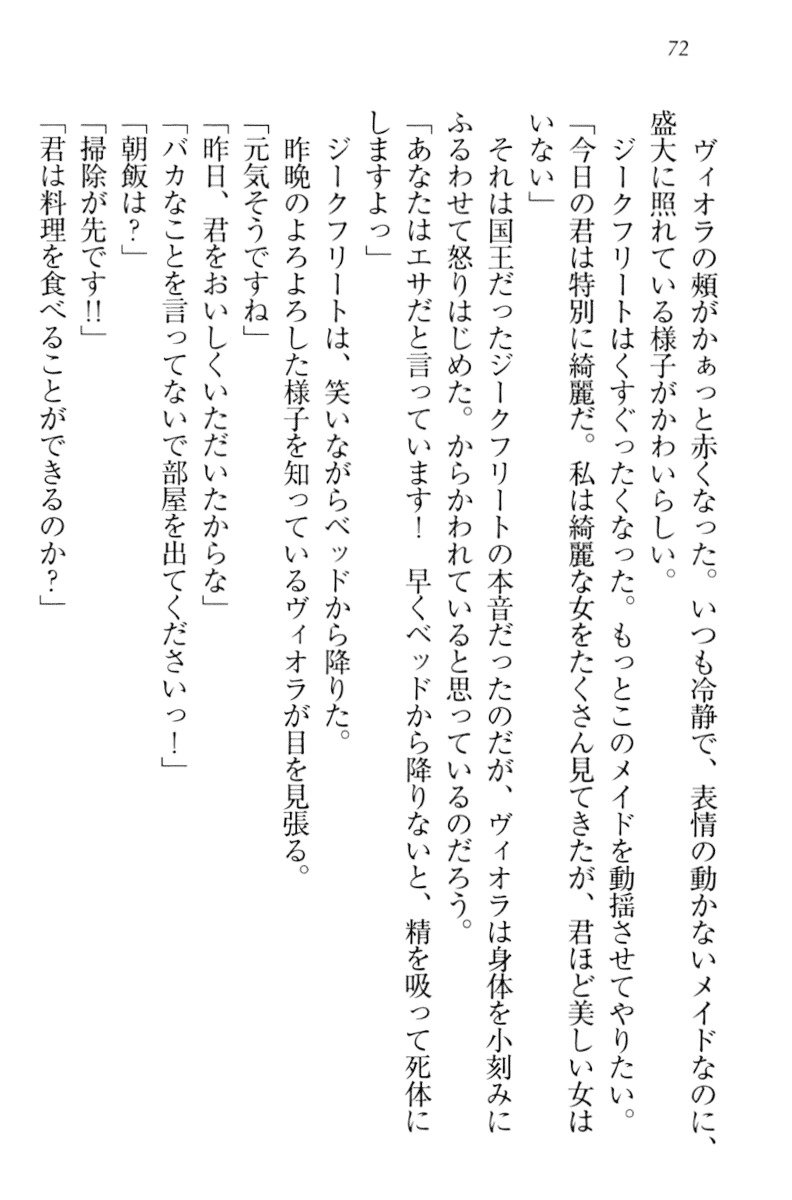 72
ヴィオラの頰がかぁっと赤くなった。いつも冷静で、表情の動かないメイドなのに、
盛大に照れている様子がかわいらしい。
ジークフリートはくすぐったくなった。もっとこのメイドを動揺させてやりたい。
「今日の君は特別に綺麗だ。私は綺麗な女をたくさん見てきたが、君ほど美しい女は
いない」
それは国王だったジークフリートの本音だったのだが、ヴィオラは身体を小刻みに
ふるわせて怒りはじめた。からかわれていると思っているのだろう。
「あなたはエサだと言っています！　早くベッドから降りないと、精を吸って死体に
しますよっ」
ジークフリートは、笑いながらベッドから降りた。
昨晩のよろよろした様子を知っているヴィオラが目を見張る。
「元気そうですね」
「昨日、君をおいしくいただいたからな」
「バカなことを言ってないで部屋を出てくださいっ！」
「朝飯は？」
「掃除が先です!!」
「君は料理を食べることができるのか？」